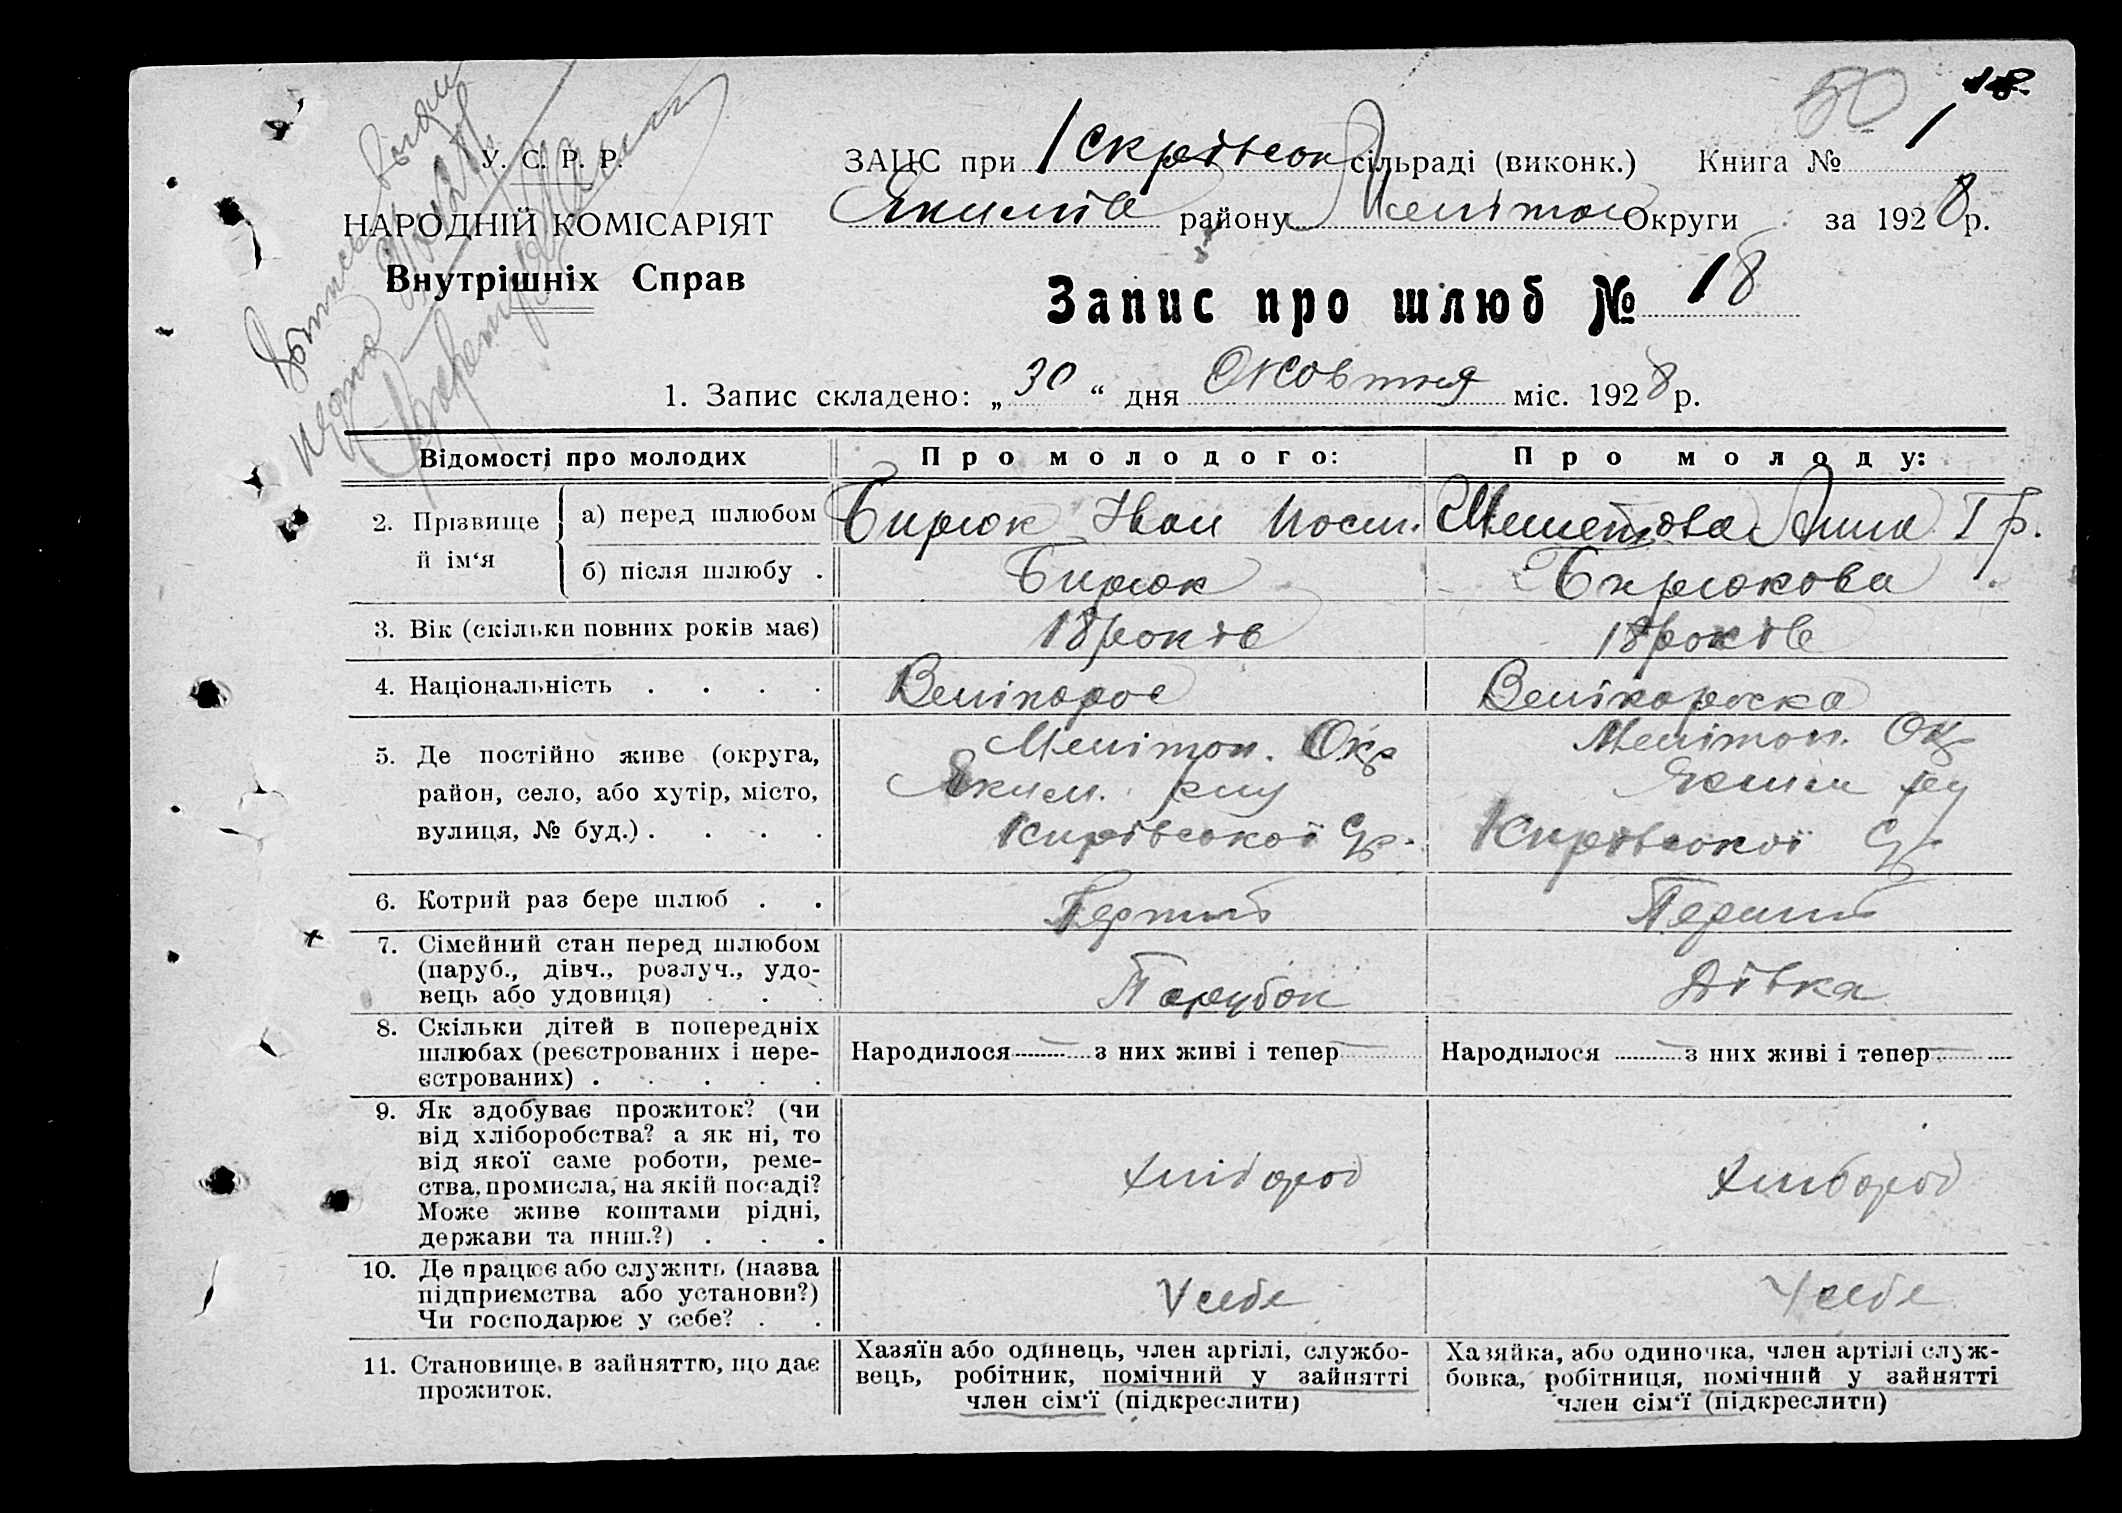 50 18
У. С. Р. Р.
НАРОДНІЙ КОМІСАРІЯТ
Внутрішніх Справ
ЗАЦС при сільраді (виконк.) Книга № 1
Якимів району Меліт Округи за 1928 р.
Запис про шлюб № 18
1. Запис складено: „30“ дня Жовтня міс. 1928 р.
Відомості про молодих
Про молодого:
Про молоду:
2. Прізвище й ім‘я
а) перед шлюбом
Бирюк Иван
Анна Гр.
б) після шлюбу .
Бирюк
Бирюкова
3. Вік (скільки повних років має)
18 років
18 років
4. Національність . . . .
Велікорос
Велікороска
5. Де постійно живе (округа,
район, село, або хутір, місто,
вулиця, № буд.) . . . .
Меліто. Окр
Яким.
Кирівської
Меліто. Ок
Яким
Кирівської
6. Котрий раз бере шлюб . .
Перший
Перший
7. Сімейний стан перед шлюбом
(паруб., дівч., розлуч., удо-
вець або удовиця) . . .
Парубок
Дівка
8. Скільки дітей в попередніх
шлюбах (реєстрованих і нере-
єстрованих) . . . . .
Народилося — з них живі і тепер —
Народилося — з них живі і тепер —
9. Як здобуває прожиток? (чи
від хліборобства? а як ні, то
від якої саме роботи, реме-
ства, промисла, на якій посаді?
Може живе коштами рідні,
держави та инш.?) . . .
хлібороб
хлібороб
10. Де працює або служить (назва
підприємства або установи?)
Чи господарює у себе? . .
У себе
У себе
11. Становище в зайняттю, що дає
прожиток.
Хазяїн або одинець, член артілі, службо-
вець, робітник, помічний у зайнятті
член сім‘ї (підкреслити)
Хазяйка, або одиночка, член артілі служ-
бовка, робітниця, помічний у зайнятті
член сім‘ї (підкреслити)